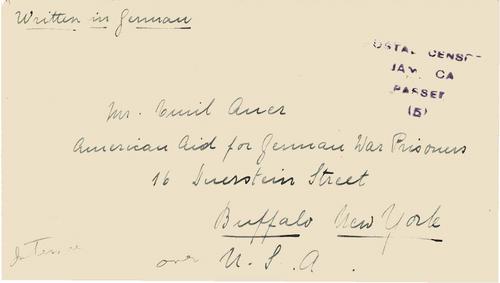 Written in German
OSTAL CENS
JAM. CA
PASSED
(5)
Mr. Emil Auer
American Aid for German War Prisoners
16 Duerstein Street
Buffalo New York
over U. S. A.